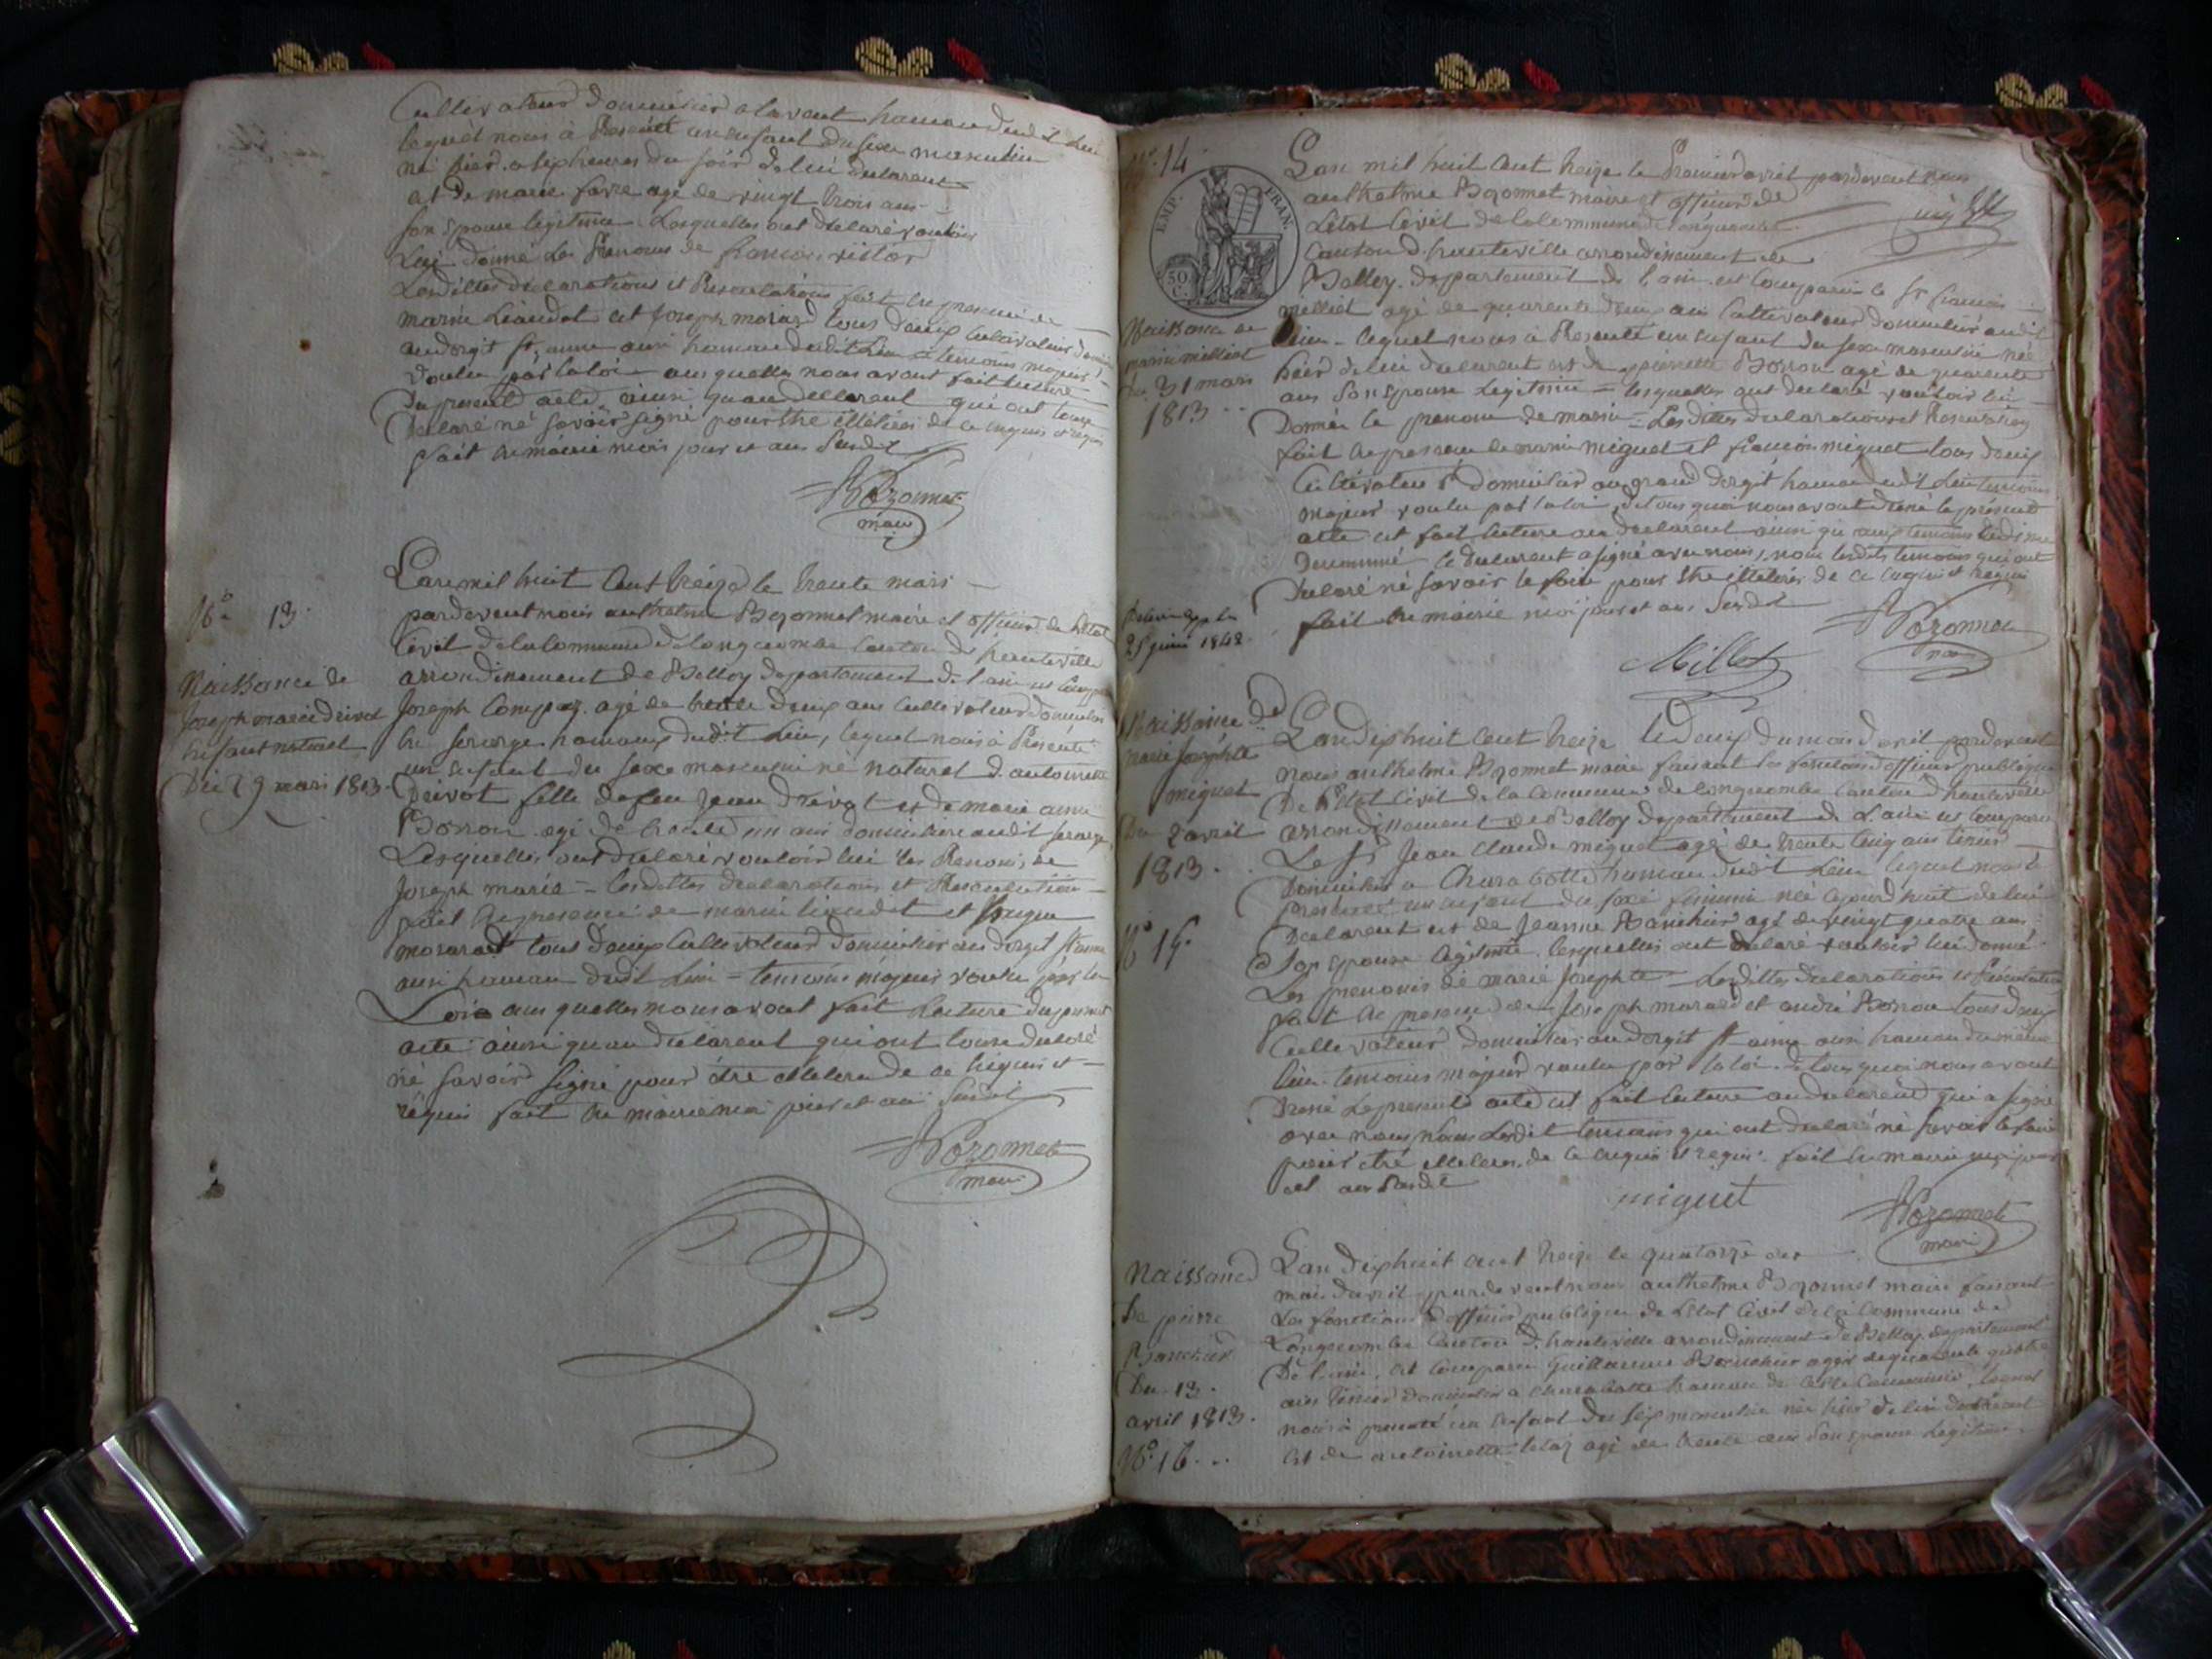 Cultivateur domicilié a lavent hameau dudit Lieu
lequel nous à Presenté un enfant du sexe masculin
né hier a sept heures du soir de lui declarent
et de marie favre agé de vingt trois ans
son Epouse legitime. Lesquelles ont declaré vouloir
Lui donné Les Prenoms de françois victor
Lesdittes declarations et Presentations fait En presence de
marin Liaudet et Joseph morard tous deux Cultivateurs
au dorgit St anne aussi hameau dudit Lieu temoins majeurs
voulu par la loi aux quelles nous avont fait lecture
Du present acte, ainsi quau declarent qui ont tous
Declaré né savoir signé pour Etre de ce enquis et requis
fait En mairie mois jour et ans Susdit
Bozonnet
maire
N° 13.
Naissance de
Joseph marie drivot
Enfant naturel
Du 29 mars 1813.
Lan mil huit Cent treize le trente mars
pardevent nous anthelme Bozonnet maire et officier de Letat
Civil de la Commune de longecombe Canton de hauteville
arrondissement de Belley departement de l'ain est
Joseph agé de trente deux ans Cultivateur domicilié
En hameau dudit Lieu, lequel nous à Presenté
un Enfant du sexe masculin né naturel d'antoinette
Drivot fille de feu Jean Drivot et de marie anne
Borron agé de trente un ans domiciliée audit
Lesquelles ont declaré vouloir lui les Prenoms de
Joseph marie - lesdittes declarations et Presentation
fait En presence de marin liaudet et
morard tous deux Cultivateurs domicilier au dorget St anne
aussi hameau dudit Lieu - temoins majeurs voulu par la
Loi aux quelles nous avont fait lecture du present
acte ainsi quau declarent qui ont tous declaré
né savoir signé pour être de ce Enquis et
requis fait En mairie mois jour et ans Susdit
Bozonnet
maire
N° 14
EMP. FRAN.
50 C.
Naissance de
marin milliet
Du 31 mars
1813
25 juin 1842
Lan mil huit Cent treize le Premier avril pardevent nous
anthelme Bozonnet maire et officier de
Letat Civil de la Commune de longecombe
Canton d'hauteville arrondissement de
Belley departement de l'ain est Comparu le Sr françois
milliet agé de quarente deux ans Cultivateur domicilié audit
Lieu - lequel nous à Presenté un Enfant du sexe masculin né
hier de lui declarent et de pierrette Borron agé de quarente
ans son Epouse Legitime - lesquelles ont declaré vouloir lui
Donner le prenom de marin - Lesdittes declarations et Presentation
fait En presence de marin miguet et françois miguet tous deux
Cultivateur domicilier au grand dorgit hameau dudit Lieu temoins
majeur voulu par la loi, de tous quoi nous avont dressé le present
acte et fait lecture au declarent ainsi qu aux temoins
Denommé le declarent a signé avec nous, non lesdits temoins qui ont
Declaré né savoir le faire pour Etre de ce enquis et requis
fait En mairie mois jour et ans Susdit
Millet
Bozonnet
Naissance de
marie Josephte
miguet
Du 2 avril
1813.
N° 15.
Lan dixhuit cent treize le deux du mois d'avril pardevent
nous anthelme Bozonnet maire faisant les fonctions d'officier publique
De l'Etat Civil de la Commune de longecombe Canton d'hauteville
arrondissement de Belley departement de L'ain est Comparu
Le Sr Jean Claude miguet agé de trente Cinq ans
Domicilier a Charabotte hameau dudit Lieu lequel nous à
presenté un enfant du sexe feminin née aujourdhuit de lui
Declarent et de Jeanne Bonchier agé de vingt quatre ans
Son Epouse legitime. lesquelles ont declaré vouloir lui donné
Les prenoms de marie Josephte - Lesdittes declarations et Presentation
fait En presence de Joseph morard et andré Borron tous deux
Cultivateur domicilier au dorgit St anne aussi hameau du même
Lieu. temoins majeur voulu par la loi. De tous quoi nous avont
Dressé Le present acte et fait lecture au declarent qui a signé
avec nous, non Lesdit temoins qui ont declaré né savoir le faire
pour être de ce enquis et requis fait En mairie
et ans susdit
miguet
Bozonnet
maire
Naissance
De pierre
Bonchier
Du 13
avril 1813.
N° 16.
Lan dixhuit cent treize le quatorze du
mois d'avril pardevent nous anthelme Bozonnet maire faisant
Les fonctions d'officier publique de L'Etat Civil de la Commune de
Longecombe Canton d'hauteville arrondissement de Belley departement
De l'ain, est Comparu Guillaume Bonchier agés de quarente quatre
ans domicilier a Charabotte hameau de Cette Commune, lequel
nous à presenté un Enfant du sexe masculin né hier de lui declarent
Et de antoinette agé de trente ans son epouse Legitime.